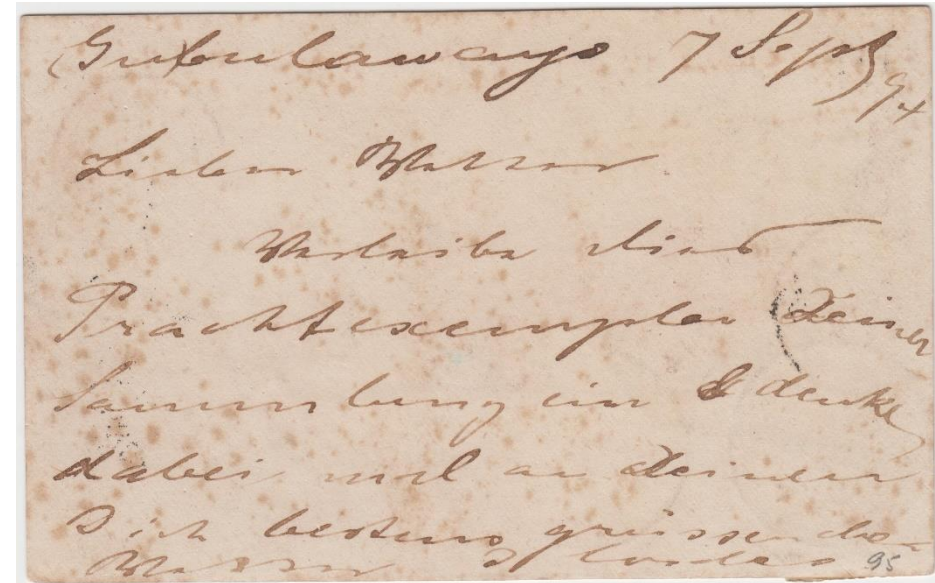 Gubulawayo 7 Sept 94
Lieber Walther
Verleibe dies
Prachtexemplar Deiner
Sammlung ein & denke
dabei mal an Deinen
Dich bestens grüssenden
95